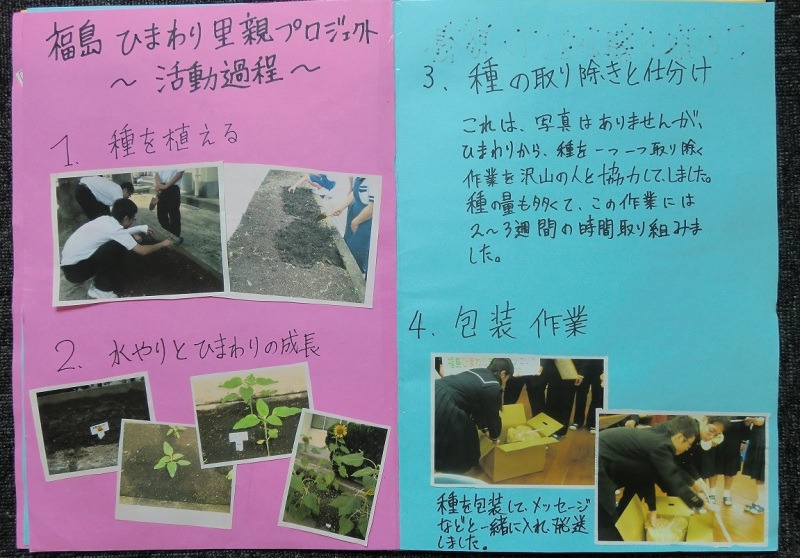 福島 ひまわり里親プロジェクト
～ 活動過程 ～
1. 種を植える
2. 水やりとひまわりの成長
3. 種の取り除きと仕分け
これは、写真はありませんが、
ひまわりから、種を一つ一つ取り除く
作業を沢山の人と協力してしました。
種の量も多くて、この作業には
2～3週間の時間取り組みま
した。
4. 包装作業
種を包装して、メッセージ
などと一緒に入れ発送
しました。